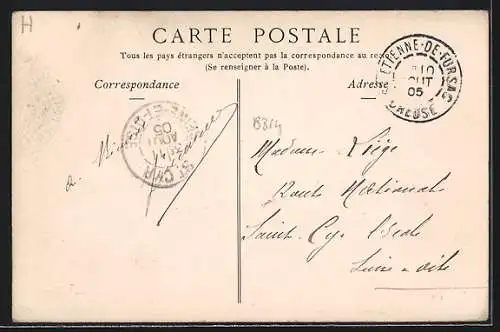 H
CARTE POSTALE
Tous les pays étrangers n'acceptent pas la correspondance au
(Se renseigner à la Poste).
Correspondance
Adresse
ETIENNE-DE-FURSAC
10
OUT
05
CREUSE
B314
ST CYR
AOUT
05
Madame Liége
Route Nationale
Saint-Cyr l'Ecole
Seine-et-Oise